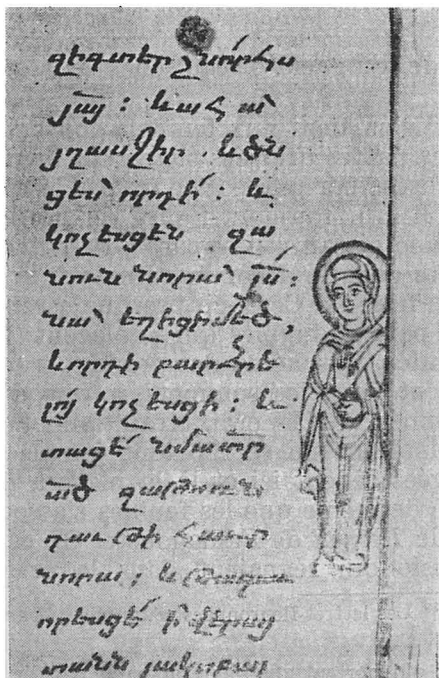 զի գտեր շնորհս
յայ : և ահա
յղասջիր . և ծն
ցես որդի : և
կոչեսցեն զա
նուն նորա յս :
նա եղիցի մեծ,
և որդի բարձրե
լոյ կոչեսցի : և
տացէ նմա տր
ած զաթոռն
դաւթի հաւր
նորա : և թագաւ
որեսցէ ի վերայ
տանն յակոբայ